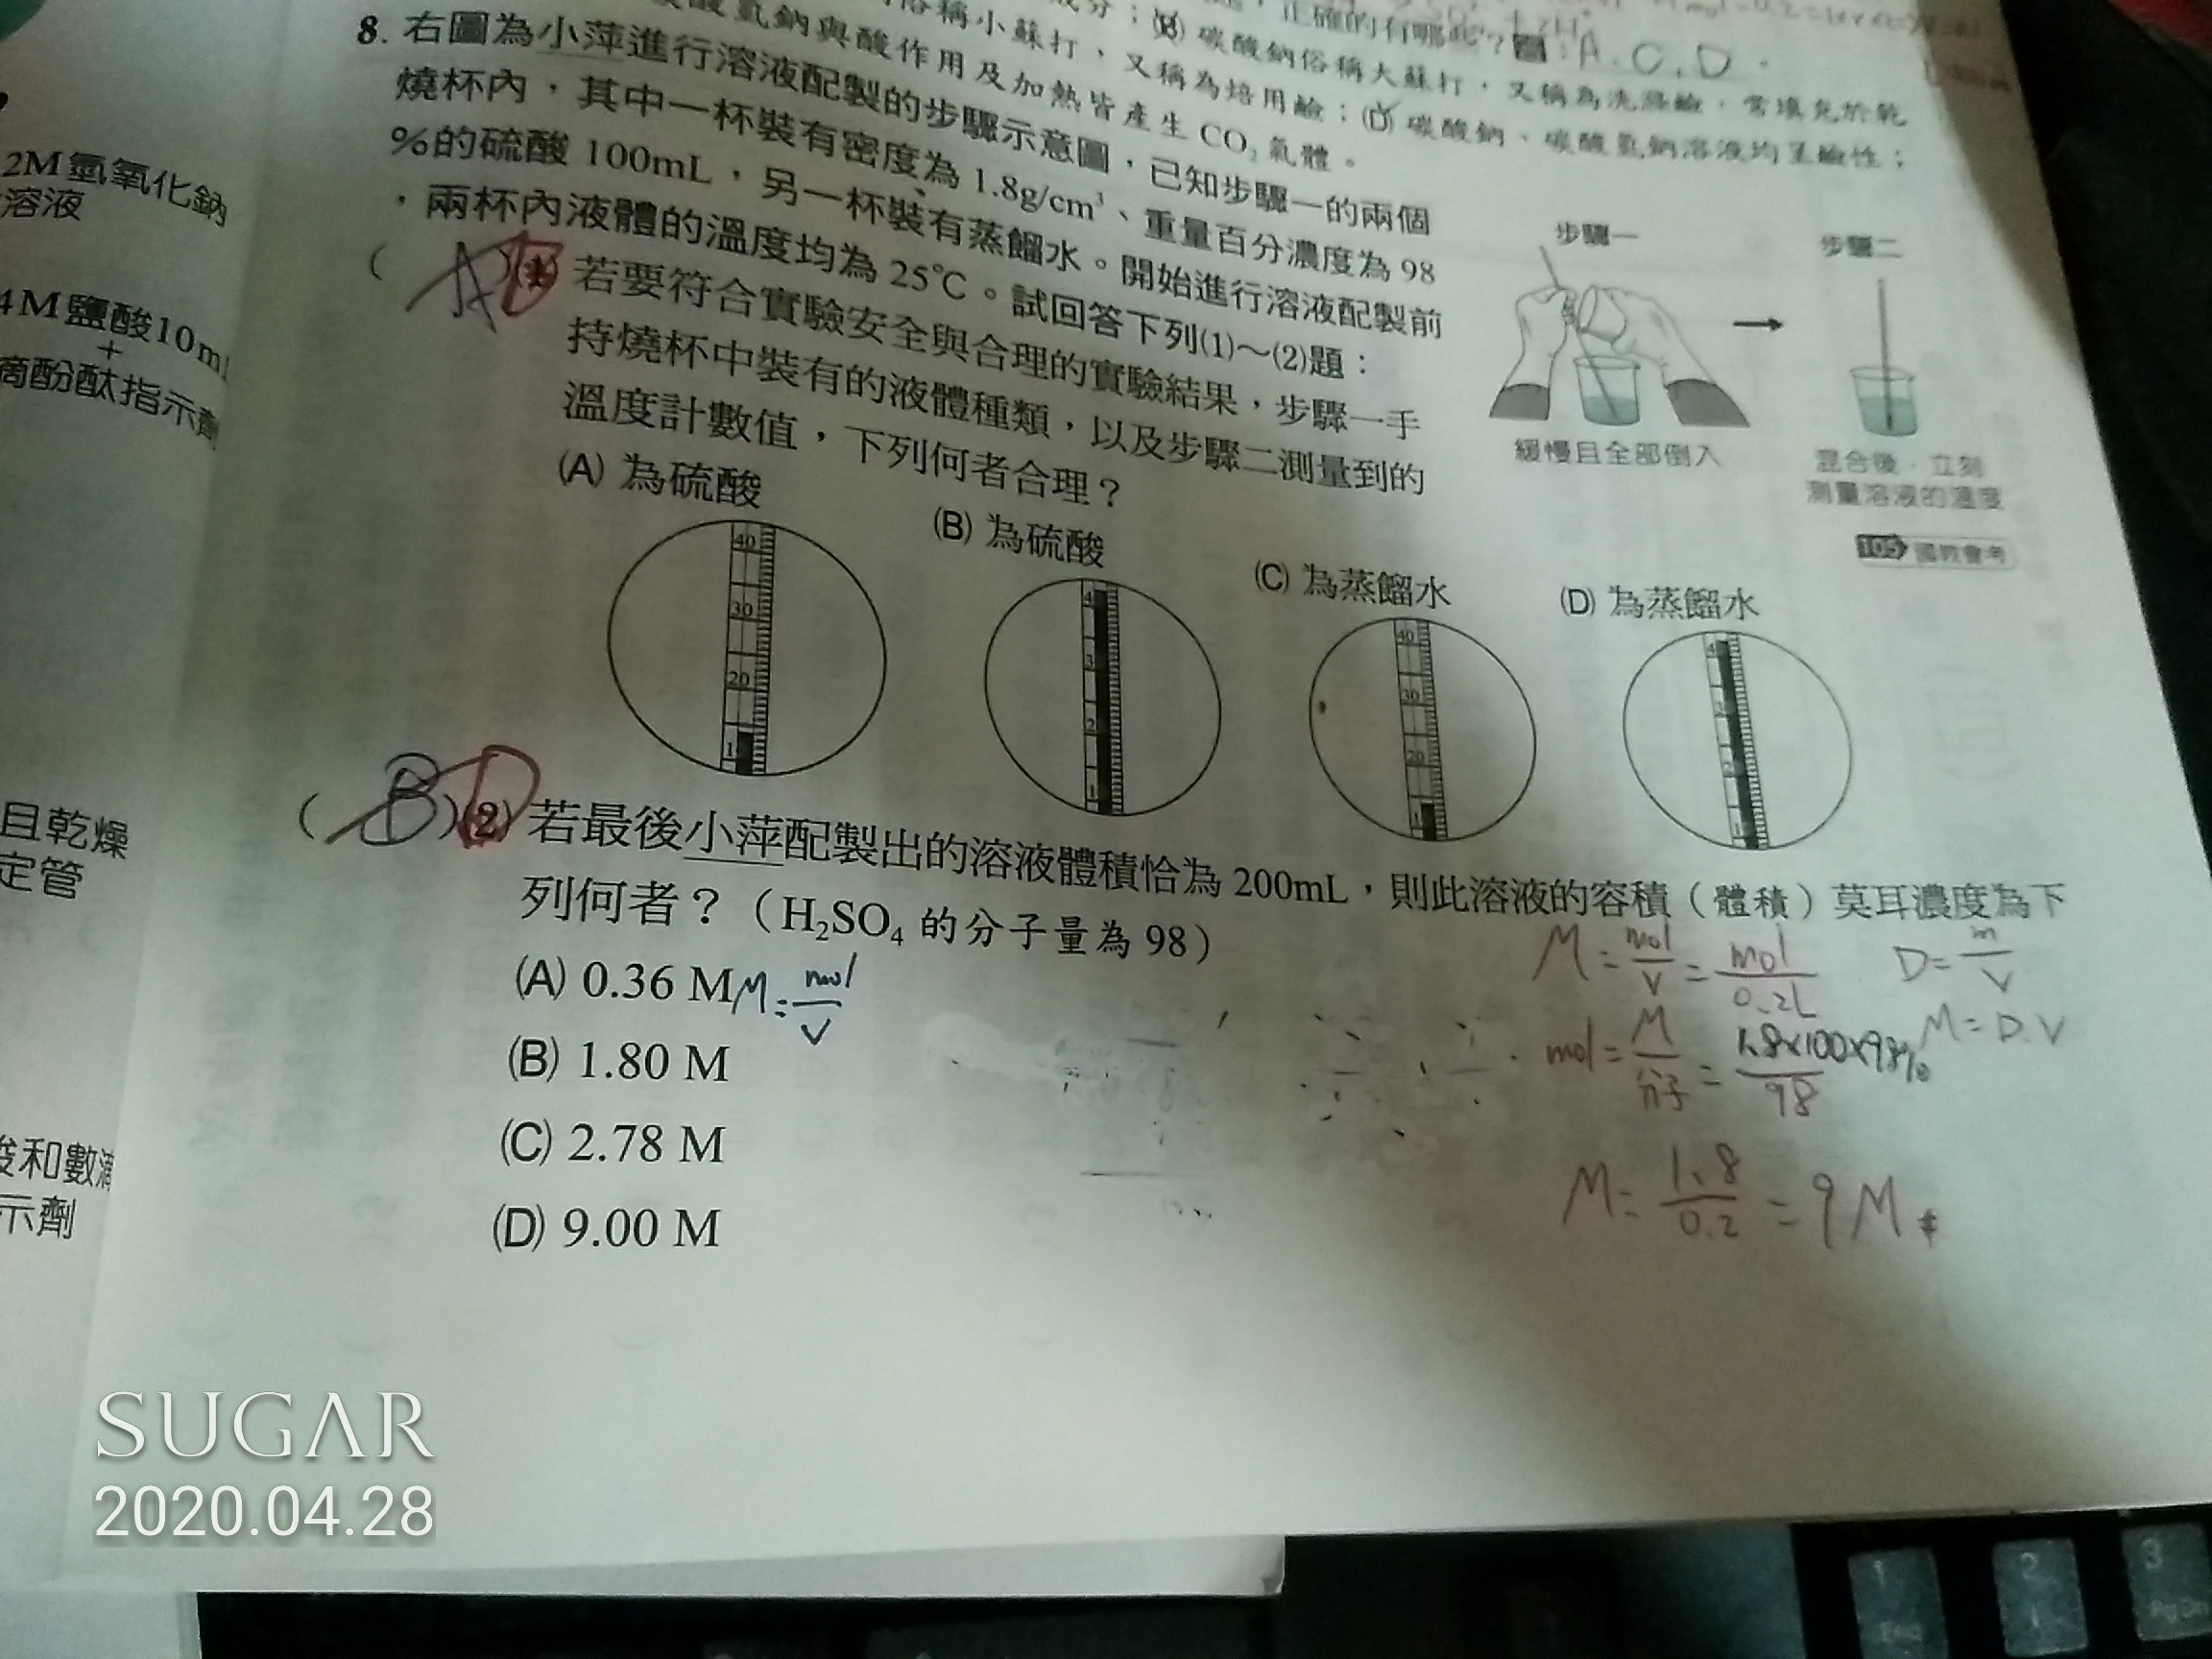 正確的有哪些?答:A、C、D。
俗稱小蘇打,又稱為焙用鹼;(B) 碳酸鈉俗稱大蘇打,又稱為洗滌鹼,常填充於乾
酸氫鈉與酸作用及加熱皆產生 CO₂ 氣體。(D) 碳酸鈉、碳酸氫鈉溶液均呈鹼性;
8. 右圖為小萍進行溶液配製的步驟示意圖,已知步驟一的兩個
燒杯內,其中一杯裝有密度為 1.8g/cm³、重量百分濃度為 98
%的硫酸 100mL,另一杯裝有蒸餾水。開始進行溶液配製前
,兩杯內液體的溫度均為 25℃。試回答下列(1)~(2)題:
步驟一
步驟二
緩慢且全部倒入
混合後,立刻
測量溶液的溫度
105 國教會考
( A ) (1) 若要符合實驗安全與合理的實驗結果,步驟一手
持燒杯中裝有的液體種類,以及步驟二測量到的
溫度計數值,下列何者合理?
(A) 為硫酸
(B) 為硫酸
(C) 為蒸餾水
(D) 為蒸餾水
40
30
20
1
4
3
2
1
40
30
20
1
4
3
2
1
( B ) D (2) 若最後小萍配製出的溶液體積恰為 200mL,則此溶液的容積(體積)莫耳濃度為下
列何者?(H₂SO₄ 的分子量為 98)
(A) 0.36 M
(B) 1.80 M
(C) 2.78 M
(D) 9.00 M
M=mol/V
M=mol/V=mol/0.2L
D=m/V
M=D.V
mol=M/分子=1.8×100×98%/98
M=1.8/0.2=9M
2M氫氧化鈉
溶液
4M鹽酸10ml
+
滴酚酞指示劑
且乾燥
定管
酸和數滴
示劑
SUGAR
2020.04.28
1
End
2
3
PgDn